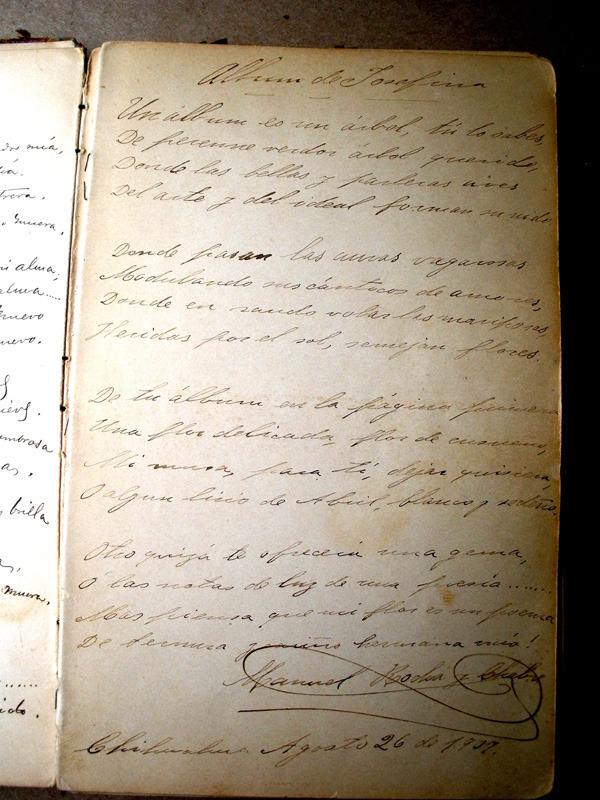 dre mía,
ía.
trera.
muera.
mi alma;
alma.....
nuevo
nuevo.
nieve.
ombrosa
as,
brilla
as,
muera.
.......
ido.
Album de Josefina
Un álbum es un árbol, tú lo sabes,
De perenne verdor árbol querido,
Donde las bellas y parleras aves
Del arte y del ideal forman su nido.
Donde pasan las auras vagarosas
Modulando sus cánticos de amores,
Donde en raudo volar las mariposas,
Heridas por el sol, semejan flores.
De tu álbum en la página primera
Una flor delicada, flor de ensueño,
Mi musa, para tí, dejar quisiera,
O algun lirio de Abril, blanco y sedeño.
Otro quizá te ofrecería una gema,
O las notas de luz de una poesía.......
Mas piensa que mi flor es un poema
De ternura y cariño hermana mía!
Manuel Rocha y Chabre
Chihuahua Agosto 26 de 1907.